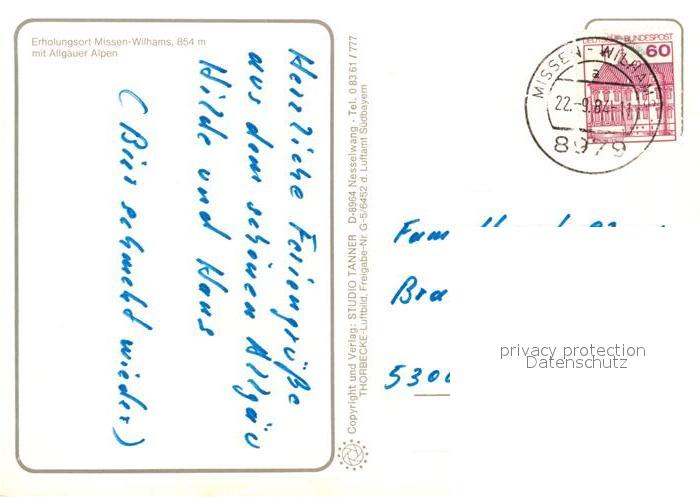 Erholungsort Missen-Wilhams, 854 m
mit Allgäuer Alpen
Herzliche Feriengrüße
aus dem schönen Allgäu
Hilde und Hans
(Bier schmeckt wieder)
Copyright und Verlag: STUDIO TANNER D-8964 Nesselwang · Tel. 0 83 61 / 777
THORBECKE-Luftbild, Freigabe-Nr. G-5/6452 d. Luftamt Südbayern
DEUTSCHE BUNDESPOST
60
MISSEN-WILHAMS
a
22.-9.84-11
8979
Fam
Bra
530
privacy protection
Datenschutz